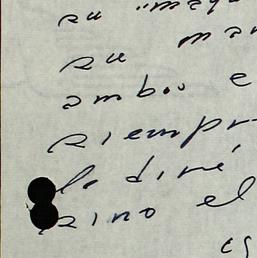 su "maq
su man
ambos e
siempr
lo diré
sino el